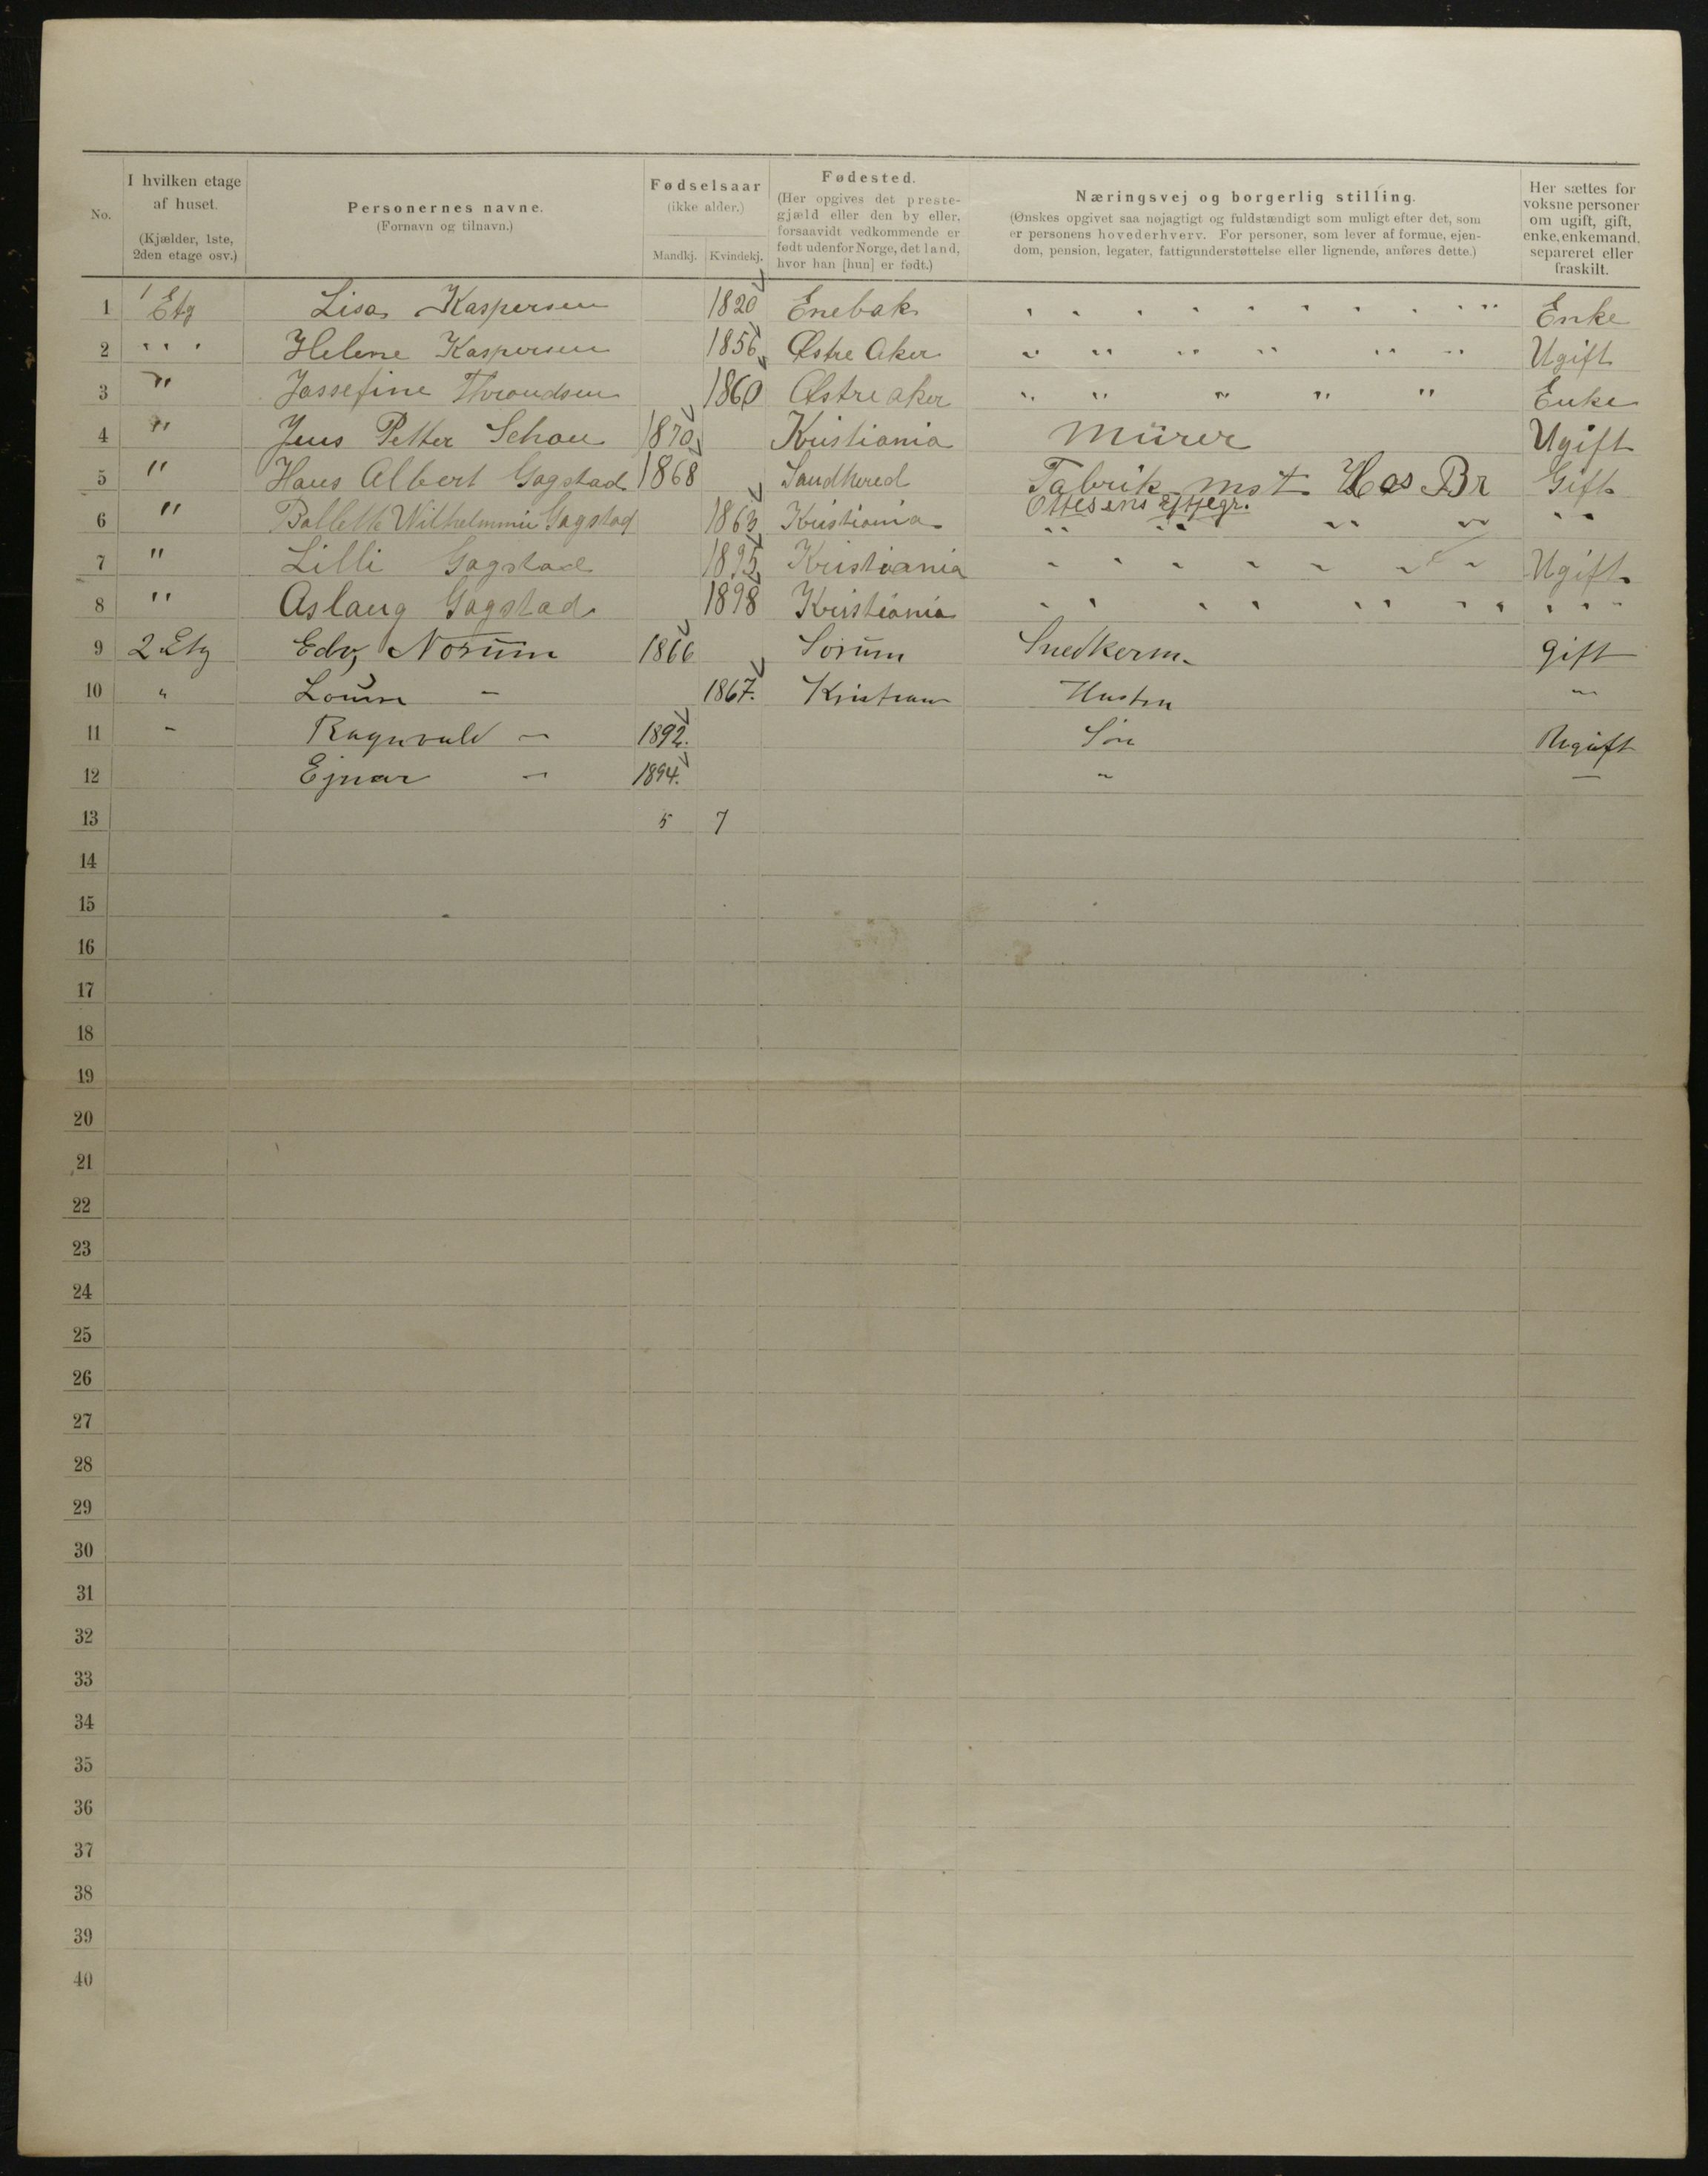 No. | I hvilken etage af huset. (Kjælder, 1ste, 2den etage osv.) | Personernes navne. (Fornavn og tilnavn.) | Fødselsaar (ikke alder.) Mandkj. Kvindekj. | Fødested. (Her opgives det prestegjæld eller den by eller, forsaavidt vedkommende er født udenfor Norge, det land, hvor han [hun] er født.) | Næringsvej og borgerlig stilling. (Ønskes opgivet saa nøjagtigt og fuldstændigt som muligt efter det, som er personens hovederhverv. For personer, som lever af formue, ejendom, pension, legater, fattigunderstøttelse eller lignende, anføres dette.) | Her sættes for voksne personer om ugift, gift, enke, enkemand, separeret eller fraskilt.
1 1 Etg Lisa Kaspersen 1820 Enebak " " " " " " Enke
2 " " " Helene Kaspersen 1856 Østre Aker " " " " " " Ugift
3 " Jossefine Throndsen 1860 Østre aker " " " " " Enke
4 " Jens Petter Schou 1870 Kristiania Mürer Ugift
5 " Hans Albert Gagstad 1868 Sandhered Fabrik mst Hos Br Gift
Ottesens eftfegr.
6 " Wilhelmine Gagstad 1863 Kristiania " " " " " "
7 " Lilli Gagstad 1895 Kristiania " " " " " " " Ugift
8 " Aslaug Gagstad 1898 Kristiania " " " " " " " " " "
9 2 Etg Edv, Norŭm 1866 Sorŭm Snedkerm. gift
10 " Louise - 1867. Kristian Hustru "
11 " Ragnvald - 1892. Søn Ugift
12 Ejnar - 1894. " -
13 5 7
14
15
16
17
18
19
20
21
22
23
24
25
26
27
28
29
30
31
32
33
34
35
36
37
38
39
40